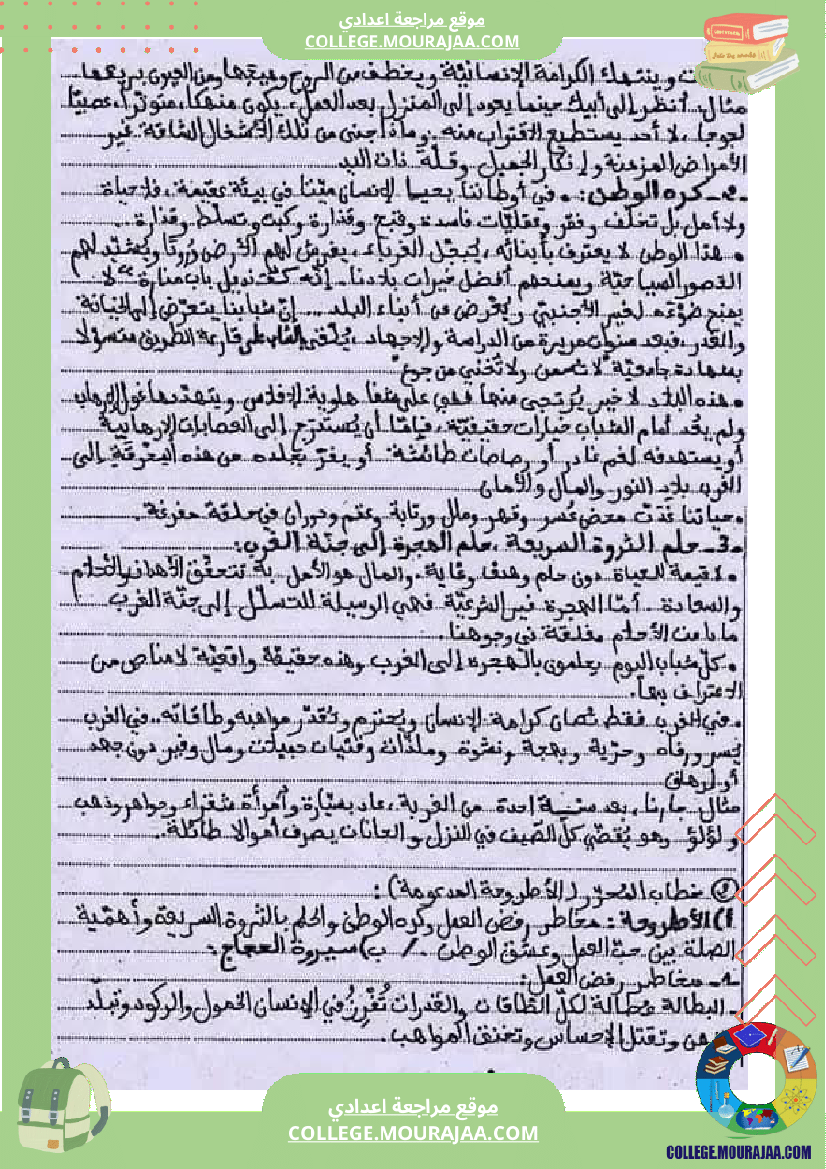 موقع مراجعة اعدادي
COLLEGE.MOURAJAA.COM
وينتهك الكرامة الإنسانيّة ويخطف من الروح وهيجها ومن العيون بريقها
مثال: أنظر إلى أبيك حينما يعود إلى المنزل بعد العمل، يكون منهكا، متوترا، عصبيّا
لجوجا، لا أحد يستطيع الاقتراب منه. وماذا جنى من تلك الأشغال الشاقة غير
الأمراض المزمنة وإنكار الجميل وقلّة ذات اليد
2- كره الوطن: في أوطاننا يحيا الإنسان ميّتا في بيئة عقيمة، فلا حياة
ولا أمل بل تخلّف وفقر وعقليّات فاسدة وقبح وقذارة وكبت وتسلّط وقذارة
• هذا الوطن لا يعترف بأبنائه، يُبجّل الغرباء، يفرش لهم الأرض ورودًا ويُشيّد لهم
القصور السياحيّة ويمنحهم أفضل خيرات بلادنا. إنّه كقنديل باب منارة "لا
يمنح ضوءه لغير الأجنبيّ ويُعرض عن أبناء البلد... إنّ شبابنا يتعرّض إلى الخيانة
والغدر، فبعد سنوات مريرة من الدراسة والاجتهاد، يُلقى الشاب على قارعة الطريق متسوّلا
بشهادة جامعيّة "لا تسمن ولا تُغني من جوع"
• هذه البلاد لا خير يُرتجى منها فهي على شفا هاوية الإفلاس ويتهدّدها غول الإرهاب
ولم يعُد أمام الشباب خيارات حقيقيّة، فإمّا أن يُستدرج إلى العصابات الإرهابية
أو يستهدفه لغم غادر أو رصاصات طائشة أو يفرّ بجلده من هذه المحرقة إلى
الغرب بلاد النور والمال والأمان
• حياتنا غدت محض عُسر وقهر وملل ورتابة وعقم ودوران في حلقة مفرغة.
3- حلم الثروة السريعة، حلم الهجرة إلى جنّة الغرب:
• لا قيمة للحياة دون حلم وهدف وغاية. والمال هو الأمل به تتحقّق الأهداف والأحلام
والسعادة. أمّا الهجرة غير الشرعيّة فهي الوسيلة للتسلّل إلى جنّة الغرب
ما دامت الأحلام مغلقة في وجوهنا.
• كلّ شباب اليوم يحلمون بالهجرة إلى الغرب وهذه حقيقة واقعيّة لا مناص من
الاعتراف بها.
• في الغرب فقط تُصان كرامة الإنسان ويُحترم وتُقدّر مواهبه وطاقاته. في الغرب
يُسر ورفاه وحرّية وبهجة ونشوة وملذّات وفتيات جميلات ومال وفير دون جهد
أو إرهاق
مثال: جارنا، بعد سنة واحدة من الغربة، عاد بسيّارة وامرأة شقراء وجواهر وذهب
ولؤلؤ وهو يُقضّي كلّ الصّيف في النزل والحانات يصرف أموالا طائلة.
② خطاب المُحوّر (الأطروحة المدعومة):
أ) الأطروحة: مخاطر رفض العمل وكره الوطن والحلم بالثروة السريعة وأهمّية
الصلة بين حبّ العمل وعشق الوطن. / ب) سيرورة الحجاج:
1- مخاطر رفض العمل:
- البطالة عطالة لكلّ الطّاقات والقدرات تُغرزُ في الإنسان الخمول والركود وتبلّد
وتقتل الإحساس وتخنق المواهب.
موقع مراجعة اعدادي
COLLEGE.MOURAJAA.COM
COLLEGE.MOURAJAA.COM